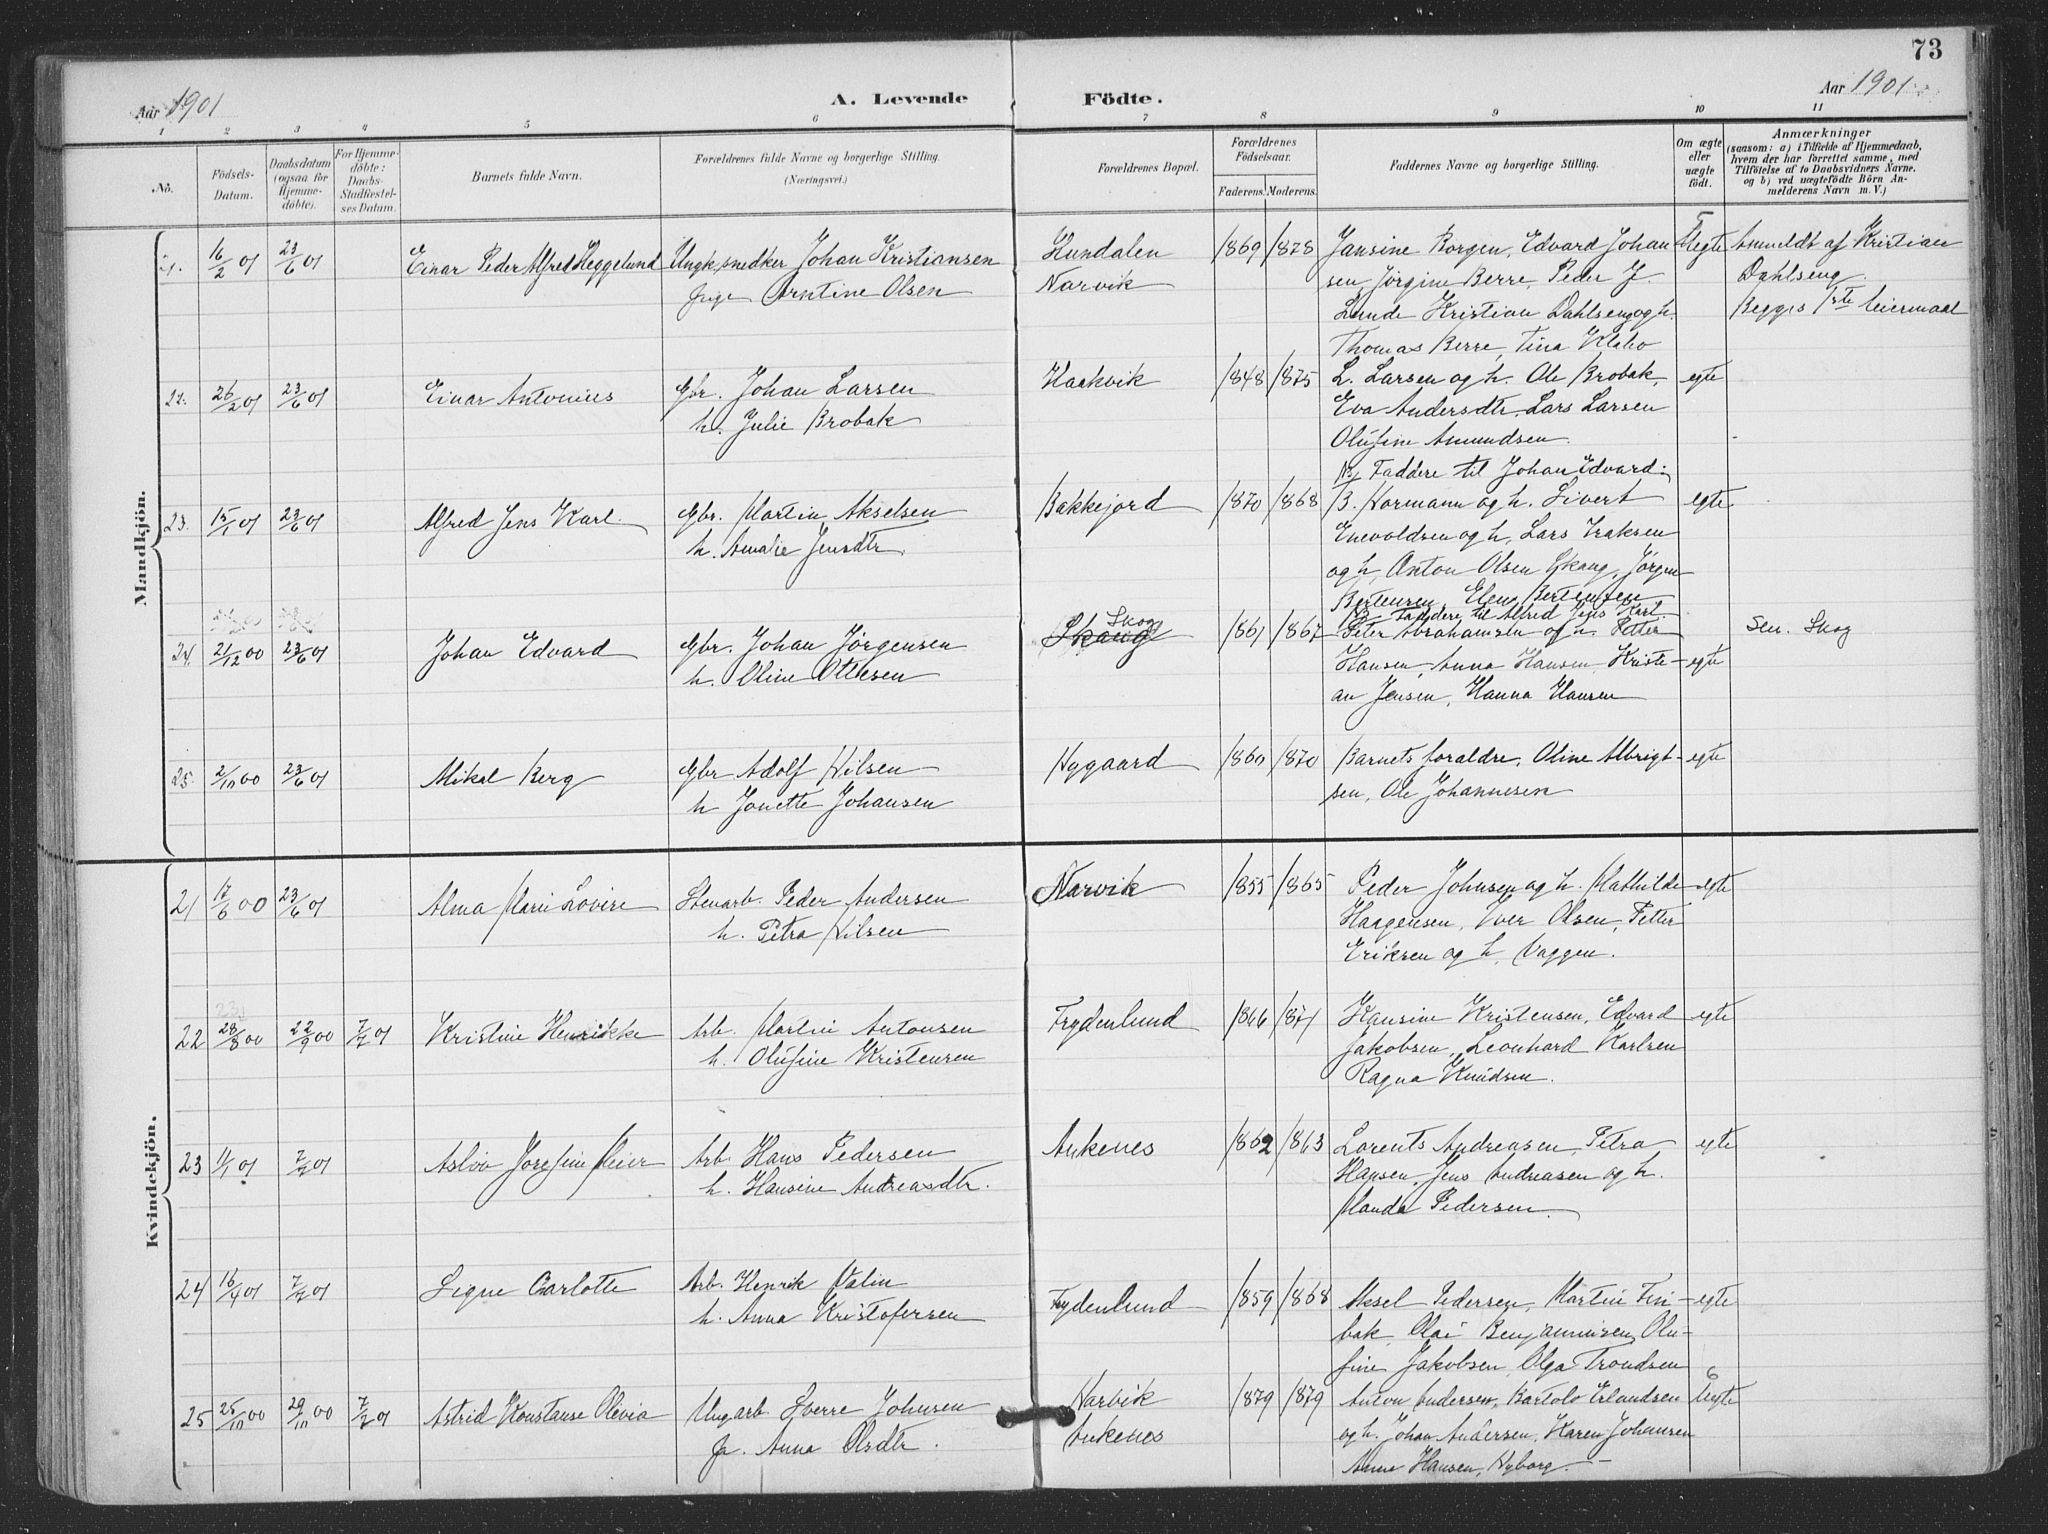 73
Aar 1901
A. Levende Födte.
Aar 1901
1 2 3 4 5 6 7 8 9 10 11
No.
Födsels-
Datum.
Daabsdatum
(ogsaa for
Hjemme-
döbte).
For Hjemme-
döbte:
Daabs-
Stadfæstel-
ses Datum.
Barnets fulde Navn.
Forældrenes fulde Navne og borgerlige Stilling.
(Næringsvei.)
Forældrenes Bopæl.
Forældrenes
Födselsaar.
Faderens. Moderens.
Faddernes Navne og borgerlige Stilling.
Om ægte
eller
uægte
födt.
Anmærkninger
(saasom: a) i Tilfælde af Hjemmedaab,
hvem der har forrettet samme, med
Tilföielse af to Daabsvidners Navne.
og b) ved uægtefödte Börn An-
melderens Navn m. V.)
Mandkjön.
21. 16/2 01 23/6 01 Einar Peder Alfred Heggelund Ungk. snedker Johan Kristiansen Kundalen 1869 1878 Jansine Borgen, Edvard Johan Uegte Anmeldt af Kristian
Pige Arntine Olsen Narvik sen, Jørgine Berre, Peder J. Dahlseng.
Lunde Kristian Dahlseng og h. Begges 1ste leiermaal
Thomas Berre, Tina Klabo
22. 26/2 01 23/6 01 Einar Antonius Gbr. Johan Larsen Haakvik 1848 1875 L. Larsen og h. Ole Brobak, egte
h. Julie Brobak Eva Andersdtr. Lars Larsen
Olufine Amundsen.
Nb Faddere til Johan Edvard:
23. 15/1 01 23/6 01 Alfred Jens Karl. Gbr. Martin Akselsen Bakkejord 1870 1868 B. Normann og h. Sivert egte
h. Amalie Jensdtr. Enevoldsen og h, Lars Isaksen
og h, Anton Olsen Skaug, Jørgen
Bertensen, Elena Bertensen
Nb Faddere til Alfred Jens Karl
24. 21/12 00 23/6 01 Johan Edvard Gbr. Johan Jørgensen Skaug Skog 1861 1867 Peter Abrahamsen og h. Petter Sen. Skog
h. Oline Ottesen Hansen, Anna Hansen Kriste- egte
an Jensen, Hanna Hansen
25. 2/10 00 23/6 01 Mikal Berg Gbr Adolf Nilsen Nygaard 1860 1870 Barnets foraldre, Oline Albrigt- egte
h Jonette Johansen sen, Ole Johannesen
Kvindekjön.
21 17/6 00 23/6 01 Alma Marie Lovise Stenarb. Peder Andersen Narvik 1855 1865 Peder Johnsen og h. Mathilde egte
h. Petra Nilsen Haagensen, Iver Olsen, Petter
Eriksen og h, Vaggen.
22 28/8 00 22/9 00 7/7 01 Kristine Henrikke Arb. Martin Antonsen Frydenlund 1866 1871 Hansine Kristensen, Edvard egte
h. Olufine Kristensen Jakobsen, Leonhard Karlsen
Ragna Knudsen.
23 11/1 01 7/7 01 Aslov Josefine Meier Arb. Hans Pedersen Ankenes 1862 1863 Lorents Andreasen, Petra egte
h. Hansine Andreasdtr. Hansen, Jens Andreasen og h.
Manda Pedersen.
24 16/4 01 7/7 01 Signe Carlotte Arb. Henrik Valin Frydenlund 1859 1868 Aksel Pedersen, Martin Fin- egte
h. Anna Kristofersen bak, Olai Benjaminsen, Olu-
fine Jakobsen, Olga Trondsen
25 25/10 00 29/10 00 7/7 01 Astrid Konstanse Olevia Ung arb. Sverre Johnsen Narvik 1879 1879 Anton Andersen, Bartolo Erlandsen Uegte
P. Anna Olsdtr. Ankenes og h. Johan Andersen, Karen Johansen
Anna Hansen, Nyborg.